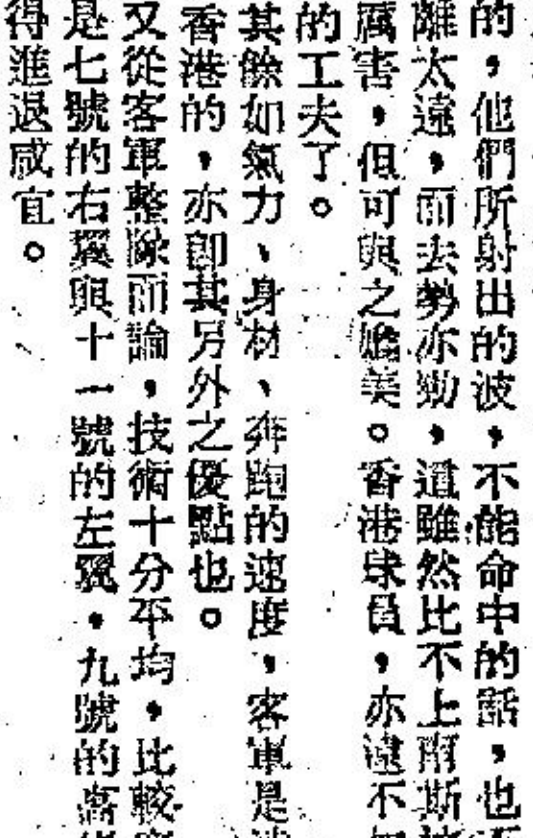 的，他們所射出的波，不能命中的話，也
離太遠，而去勢亦勁，這雖然比不上南斯
厲害，但可與之媲美。香港球員，亦遠不
的工夫了。
其餘如氣力、身材、奔跑的速度，客軍是
香港的，亦卽其另外之優點也。
又從客軍整隊而論，技術十分平均，比較
是七號的右翼與十一號的左翼，九號的
得進退咸宜。